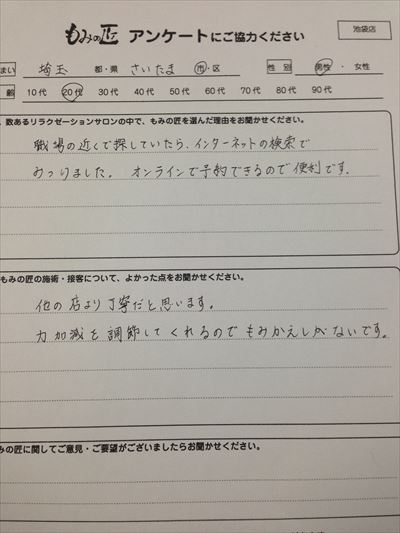 もみの匠 アンケートにご協力ください
池袋店
まい 埼玉 都・県 さいたま 市・区 性別 男性・女性
齢 10代 20代 30代 40代 50代 60代 70代 80代 90代
数あるリラクゼーションサロンの中で、もみの匠を選んだ理由をお聞かせください。
職場の近くで探していたら、インターネットの検索で
みつけました。 オンラインで予約できるので便利です。
もみの匠の施術・接客について、よかった点をお聞かせください。
他の店より丁寧だと思います。
力加減を調節してくれるのでもみかえしがないです。
みの匠に関してご意見・ご要望がございましたらお聞かせください。